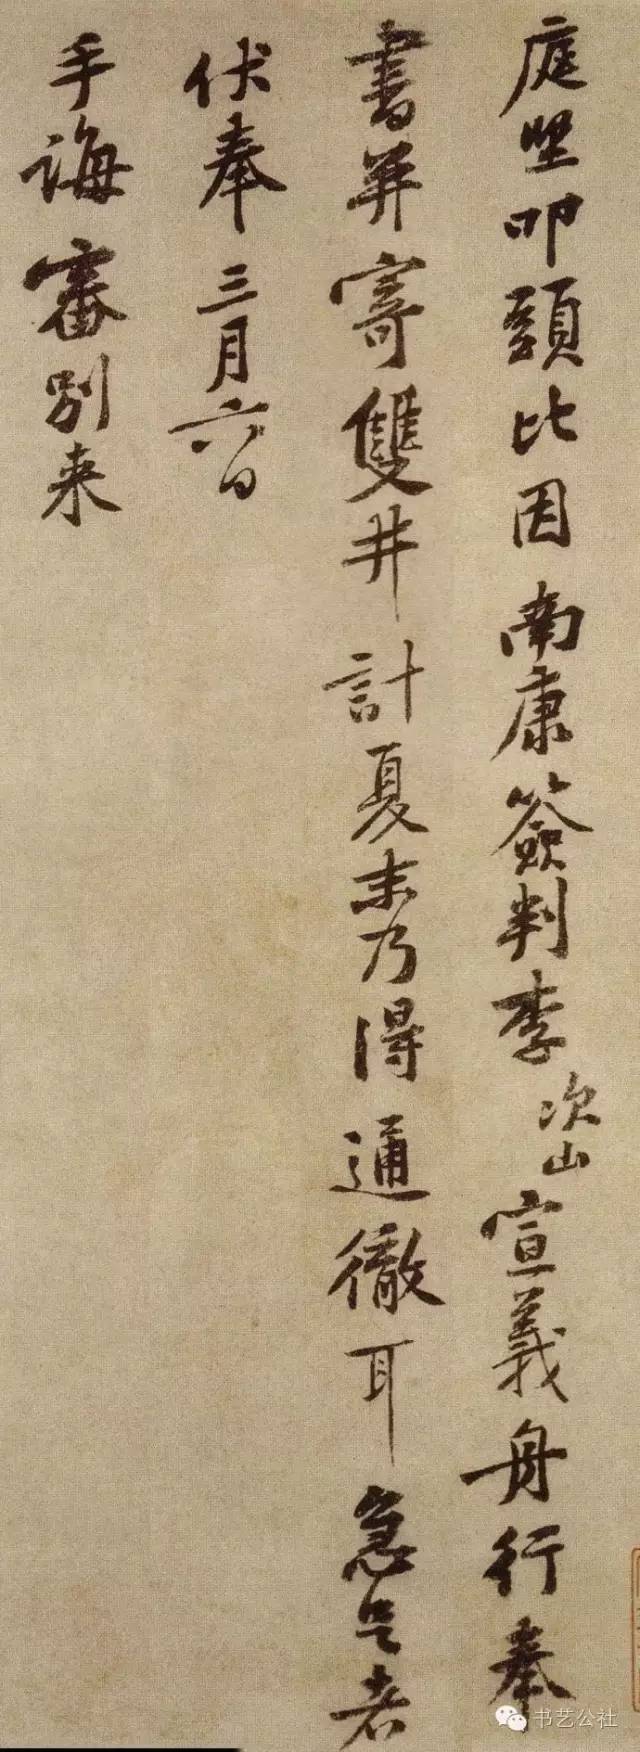 庭堅叩頭比因南康簽判李次山宣義舟行奉
書并寄雙井計夏末乃得通徹耳急足者
伏奉三月六日
手誨審別来
书艺公社